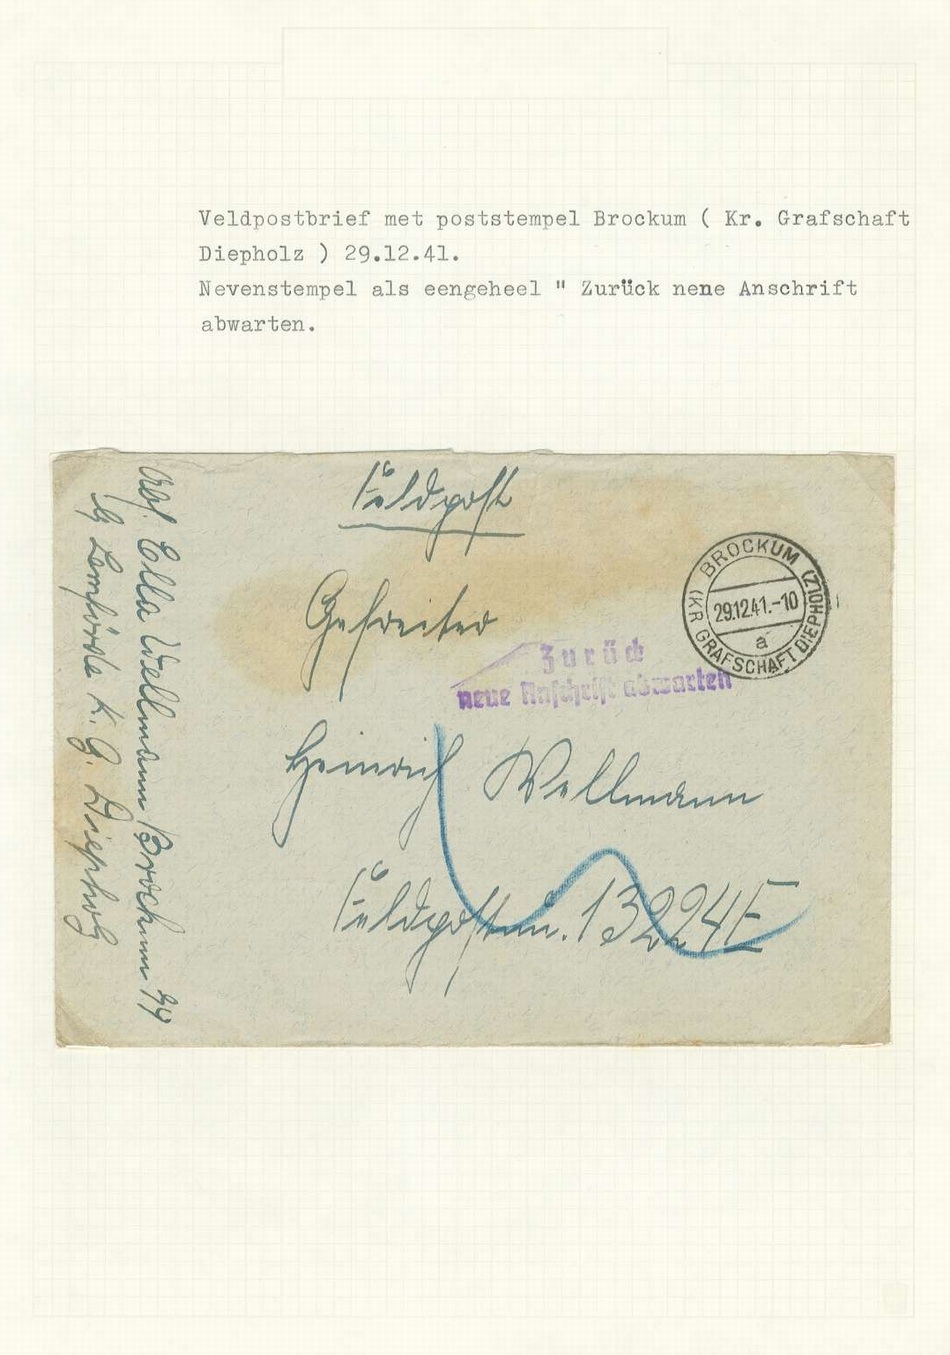 Veldpostbrief met poststempel Brockum ( Kr. Grafschaft
Diepholz ) 29.12.41.
Nevenstempel als eengeheel " Zurück nene Anschrift
abwarten.
Feldpost
Gefreiter
Heinrich Wellmann
Feldpostnr. 13224E
Zurück
neue Anschrift abwarten
BROCKUM
29.12.41.-10
a
(KR GRAFSCHAFT DIEPHOLZ)
Abs. Ella Wellmann Brockum 44
Lemförde K. G. Diepholz